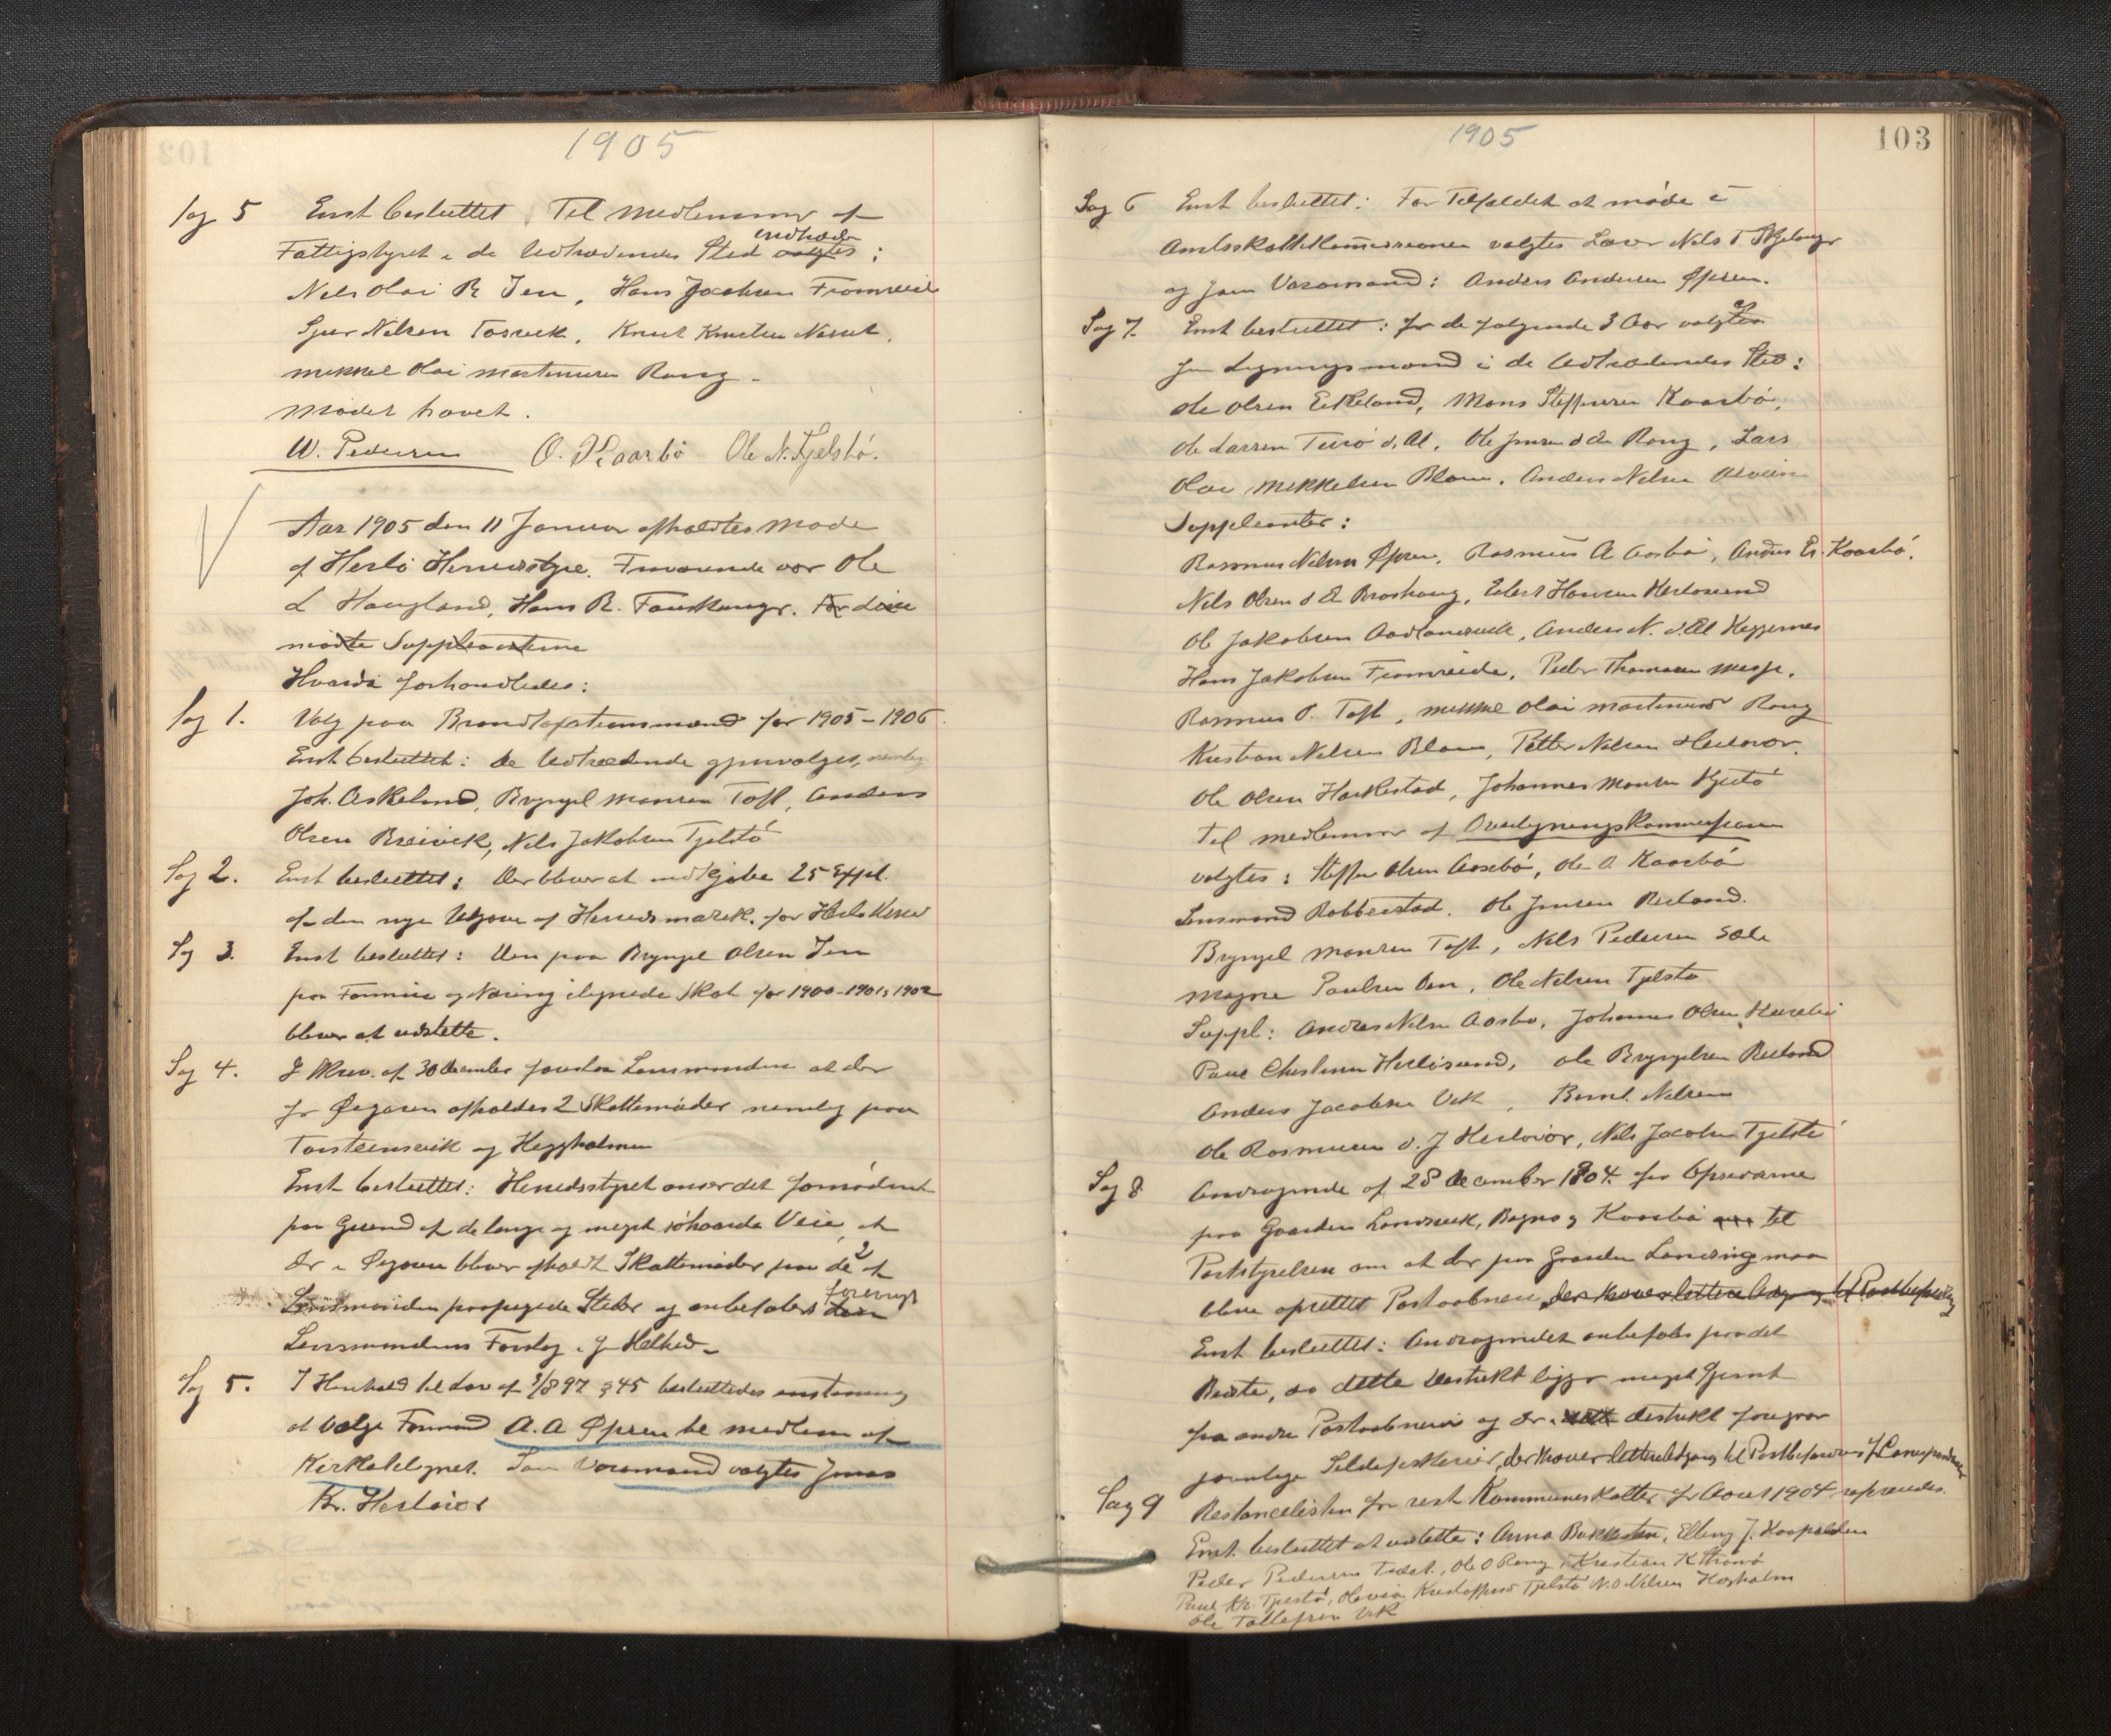 1905
Sag 5 Enst besluttet, Til medlemmer af
Fattigstyret i de Udtrædendes Sted valgtes indtræder :
Nels Olai R Jen, Hans Jacobsen Fromreide
Sjur Nilsen Tosvik, Knut Knutsen Nesset,
Mikkel Olai Martinusen Rong.
Mødet hævet.
W. Pedersen O. Kaarbø Ole N. Tjelstø.
Aar 1905 den 11 Januar afholdtes Møde
af Herlø Herredsstyre. Fraværende var Ole
L Haugland, Hans R. Fauskanger. For disse
mødte Suppleanterne
Hvorda forhandledes:
Sag 1. Valg paa Brandtaxtionsmænd for 1905 - 1906.
Enst besluttet: de Udtrædende gjenvalges, nemlig
Joh. Askeland, Brynjel Monsen Toft, Anders
Olsen Breivik, Nils Jakobsen Tjelstø
Sag 2. Enst besluttet: Der bliver at indkjøbe 25 Expl.
af den nye Udgave af Herredsmatrik. for Herlø Herred
Sag 3. Enst besluttet: Den paa Brynjel Olsen Jen
paa Formue og Næring ilignede Skat for 1900-1901 & 1902
bliver at udslette.
Sag 4. I Skriv. af 30 December foreslaar Lensmanden at der
for Øygaren afholdes 2 Skattemøder nemlig paa
Torsteinsvik og Heggholmen
Enst besluttet: Herredsstyret anser det fornødent
paa Grund af de lange og meget søhaarde Veie, at
der i Øygaren bliver afholdt Skattemøder paa de 2 af
Lensmanden paapegede Steder og anbefales forøvrigt den
Lensmandens Forslag i sin Helhed.
Sag 5. I Henhold til Lov af 3/8 97 § 45 besluttedes enstemmig
at vælge Formand A. A Øpsen til medlem af
Kirketilsynet. Som Varamand valgtes Jonas
Kr. Herløvær
1905
103
Sag 6 Enst besluttet: For Tilfældet at møde i
Amtsskattekommissionen valgtes Lærer Nils T Skjelanger
og som Varamand: Anders Andersen Øpsen.
Sag 7. Enst besluttet: for de følgende 3 Aar valgtes
som Ligningsmænd i de Udtrædendes Sted:
Ole Olsen Eikeland, Mons Steffensen Kaarbø,
Ole Larsen Turø d. Æl, Ole Jensen d. Æ Rong, Lars
Olai Mikkelsen Blom, Anders Nilsen Alvem
Suppleanter:
Rasmus Nilsen Øpsen, Rasmus A Aasbø, Anders Er. Kaarbø.
Nils Olsen d Æ Brashaug, Edert Hansen Herløsund
Ole Jakobsen Aadlandsvik, Anders N. d. Æl Heggernes
Hans Jakobsen Fromreide, Peder Thomasen Misje.
Rasmus P. Toft, Mikkel Olai Martinusen Rong
Kristian Nilsen Blom, Petter Nilsen Herløvær.
Ole Olsen Harkestad, Johannes Monsen Njøtø
Til medlemmer af Overligningskommissionen
valgtes: Steffen Olsen Aasebø, Ole O. Kaarbø
Lensmand Robberstad. Ole Jensen Riisland.
Brynjel Monsen Toft, Nils Pedersen Sæle
Magne Paulsen Oen, Ole Nilsen Tjelstø
Suppl: Anders Nilsen Aasbø, Johannes Olsen Husebø
Paul Christensen Hellisund, Ole Brynjelsen Riisland
Anders Jacobsen Vik, Bernt Nilsen
Ole Rasmusen d. Y Herløvær, Nils Jacobsen Tjelstø
Sag 8 Andragende af 28 December 1904 fra Opsidderne
paa Gaarden Landsvik, Bognø og Kaarbø til
Poststyrelsen om at der paa Gaarden Landsvig maa
blive oprettet Postaabneri, der kræver lettere Adgang til Postbefordring
Enst besluttet: Andragendet anbefales paa det
Bedste, da dette Distrikt ligger meget fjernt
fra andre Postaabneri og der i dette distrikt foregaar
jævnlige Sildefiskerier, der kræver lettere Adgang til Postbefordring af Correspondancer
Sag 9 Restancelisten for rest Kommuneskatter for Aaret 1904 oplæstes.
Enst. besluttet at udslette: Anna Bakkesten, Elling J. Haapolden
Peder Pedersen Tvedt, Ole O Rong, Kristian K Strømø
Paul Kr. Tjelstø, Olevia Kristoffersd Tjelstø N. O Nilsen Hagholm
Ole Tollefsen Vik